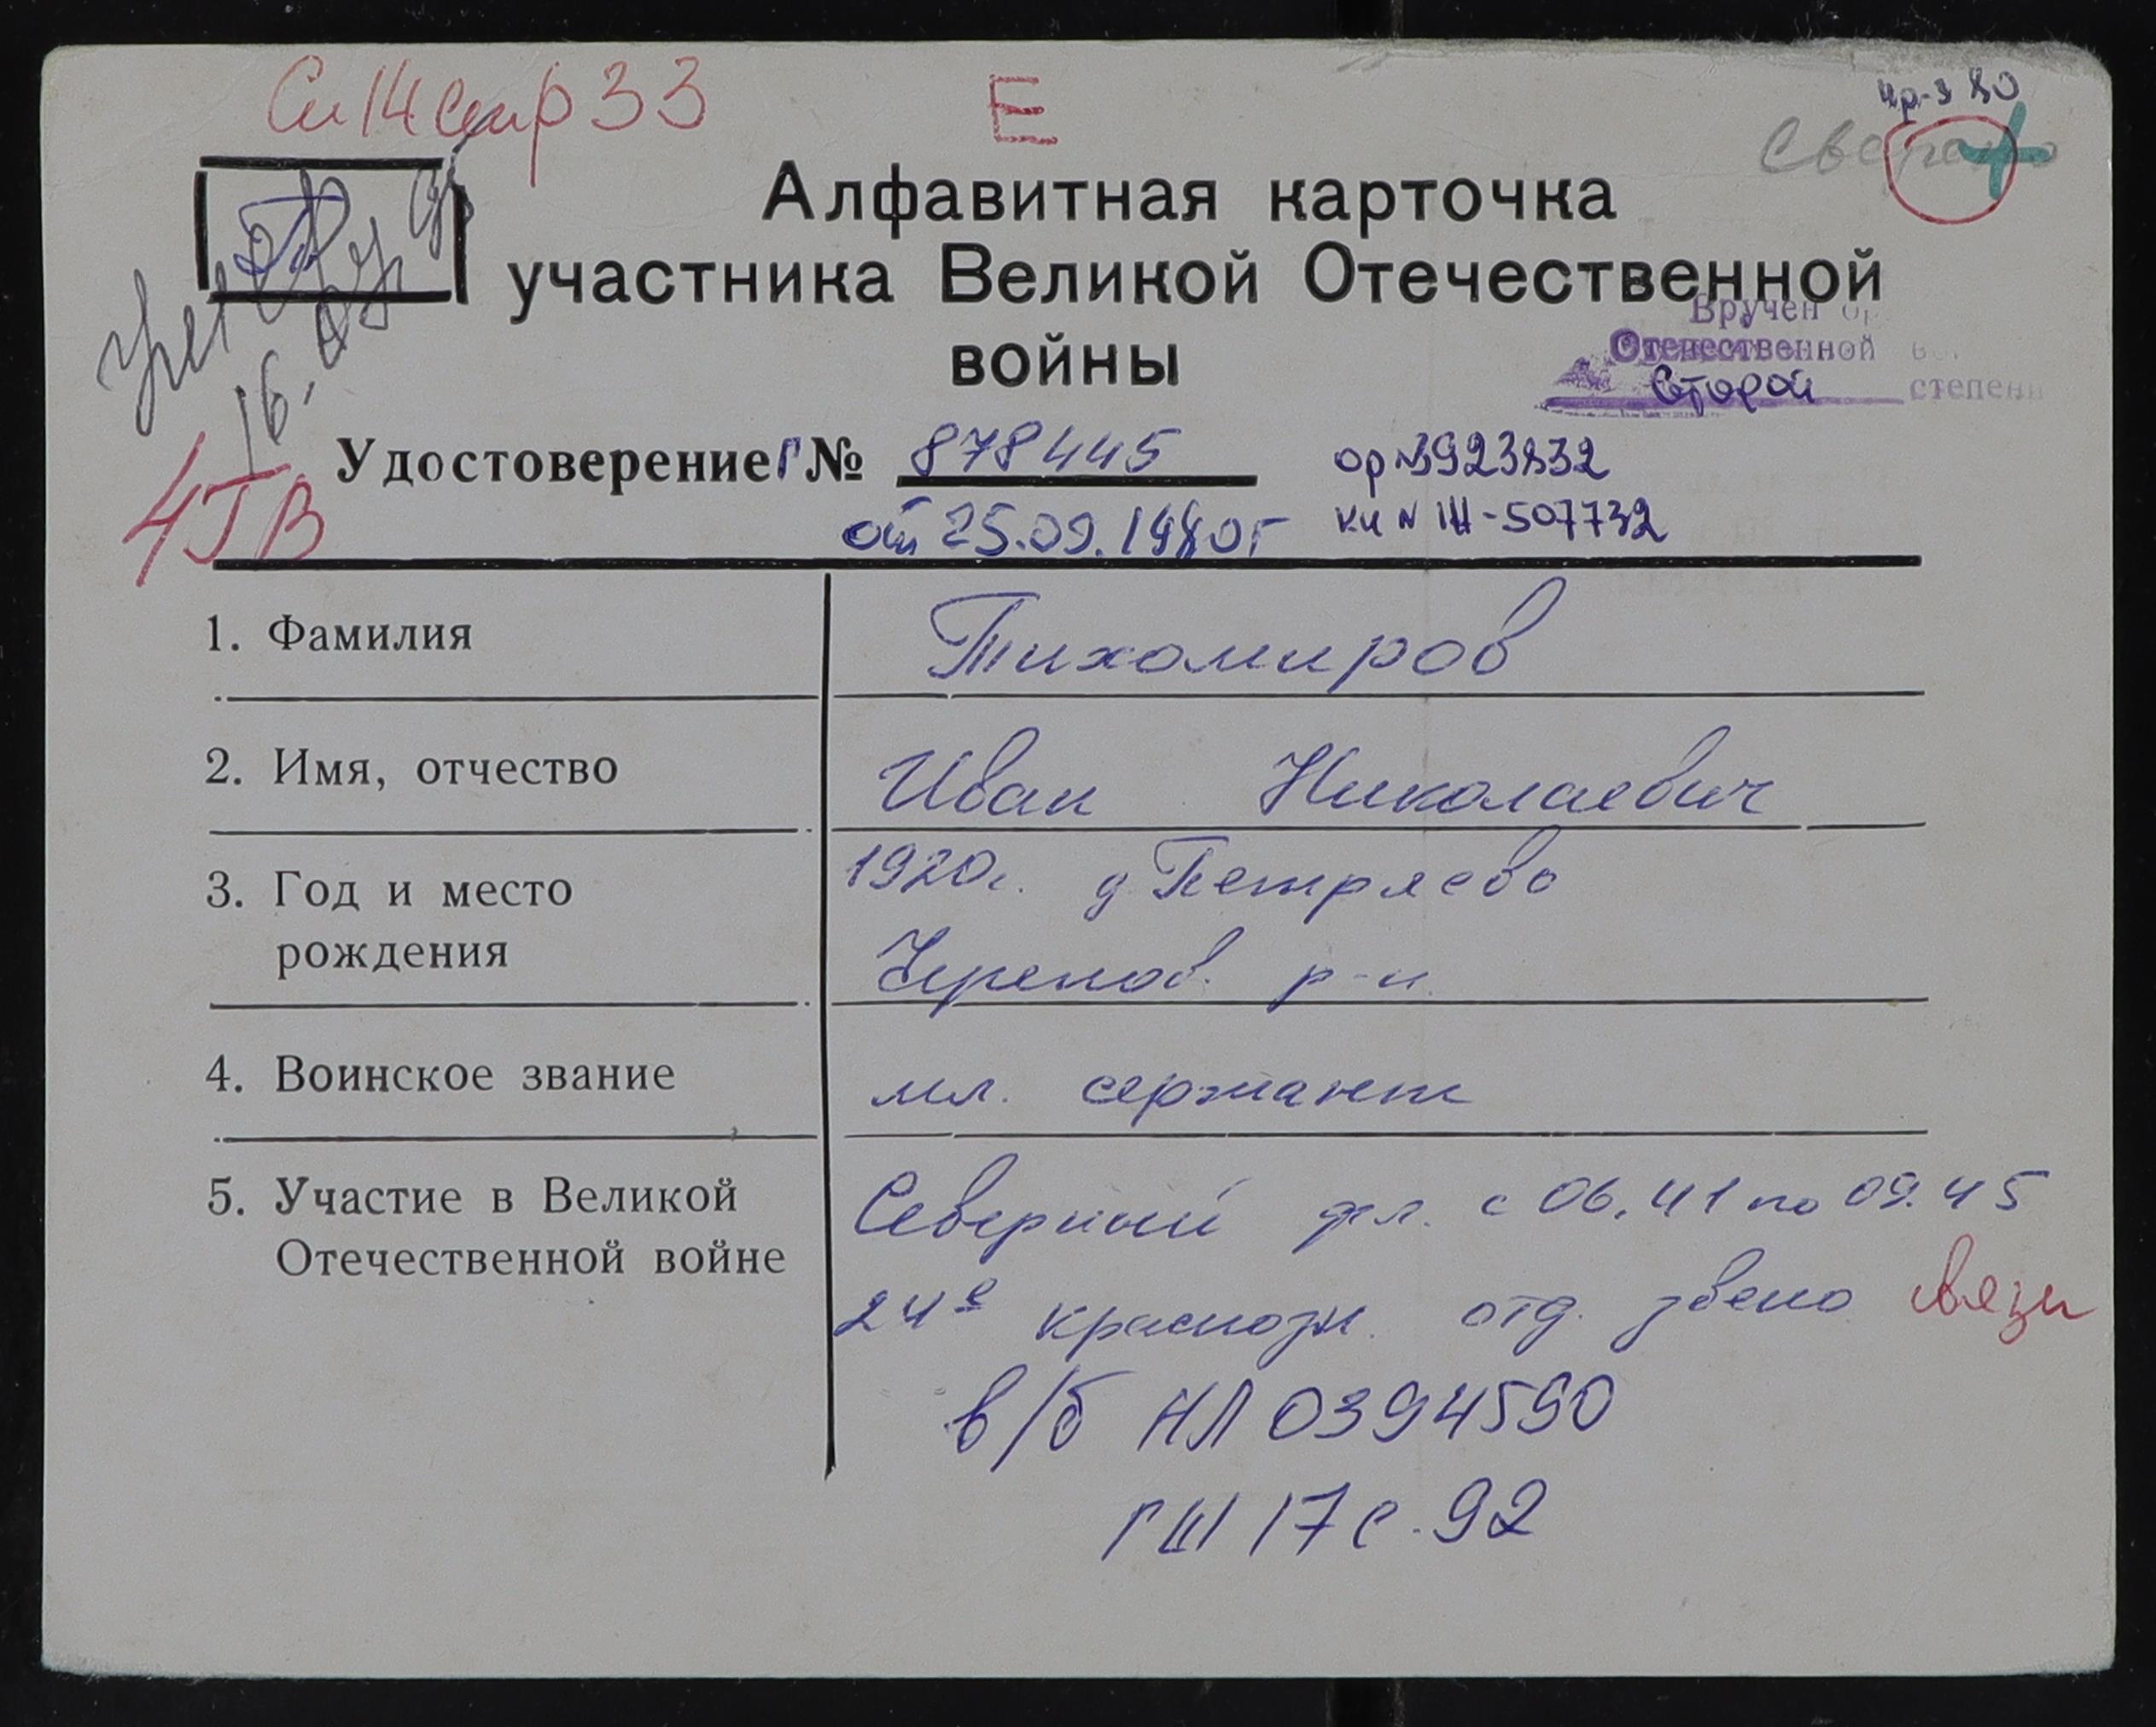 Сп 14 стр 33
Е
цр-з 80
Сверено
Алфавитная карточка
участника Великой Отечественной
войны
Вручен ор
Отечественной
Второй степени
16.
4ТВ
Удостоверение Г № 878445
ор № 3923832
от 25.09.1980г
кн № III-507732
1. Фамилия
Тихомиров
2. Имя, отчество
Иван Николаевич
3. Год и место
рождения
1920г. д. Петряево
р-н.
4. Воинское звание
мл. сержант
5. Участие в Великой
Отечественной войне
Северный фл. с 06.41 по 09.45
24е краснозн. отд. звено связи
в/б НЛ 0394590
17 с. 92